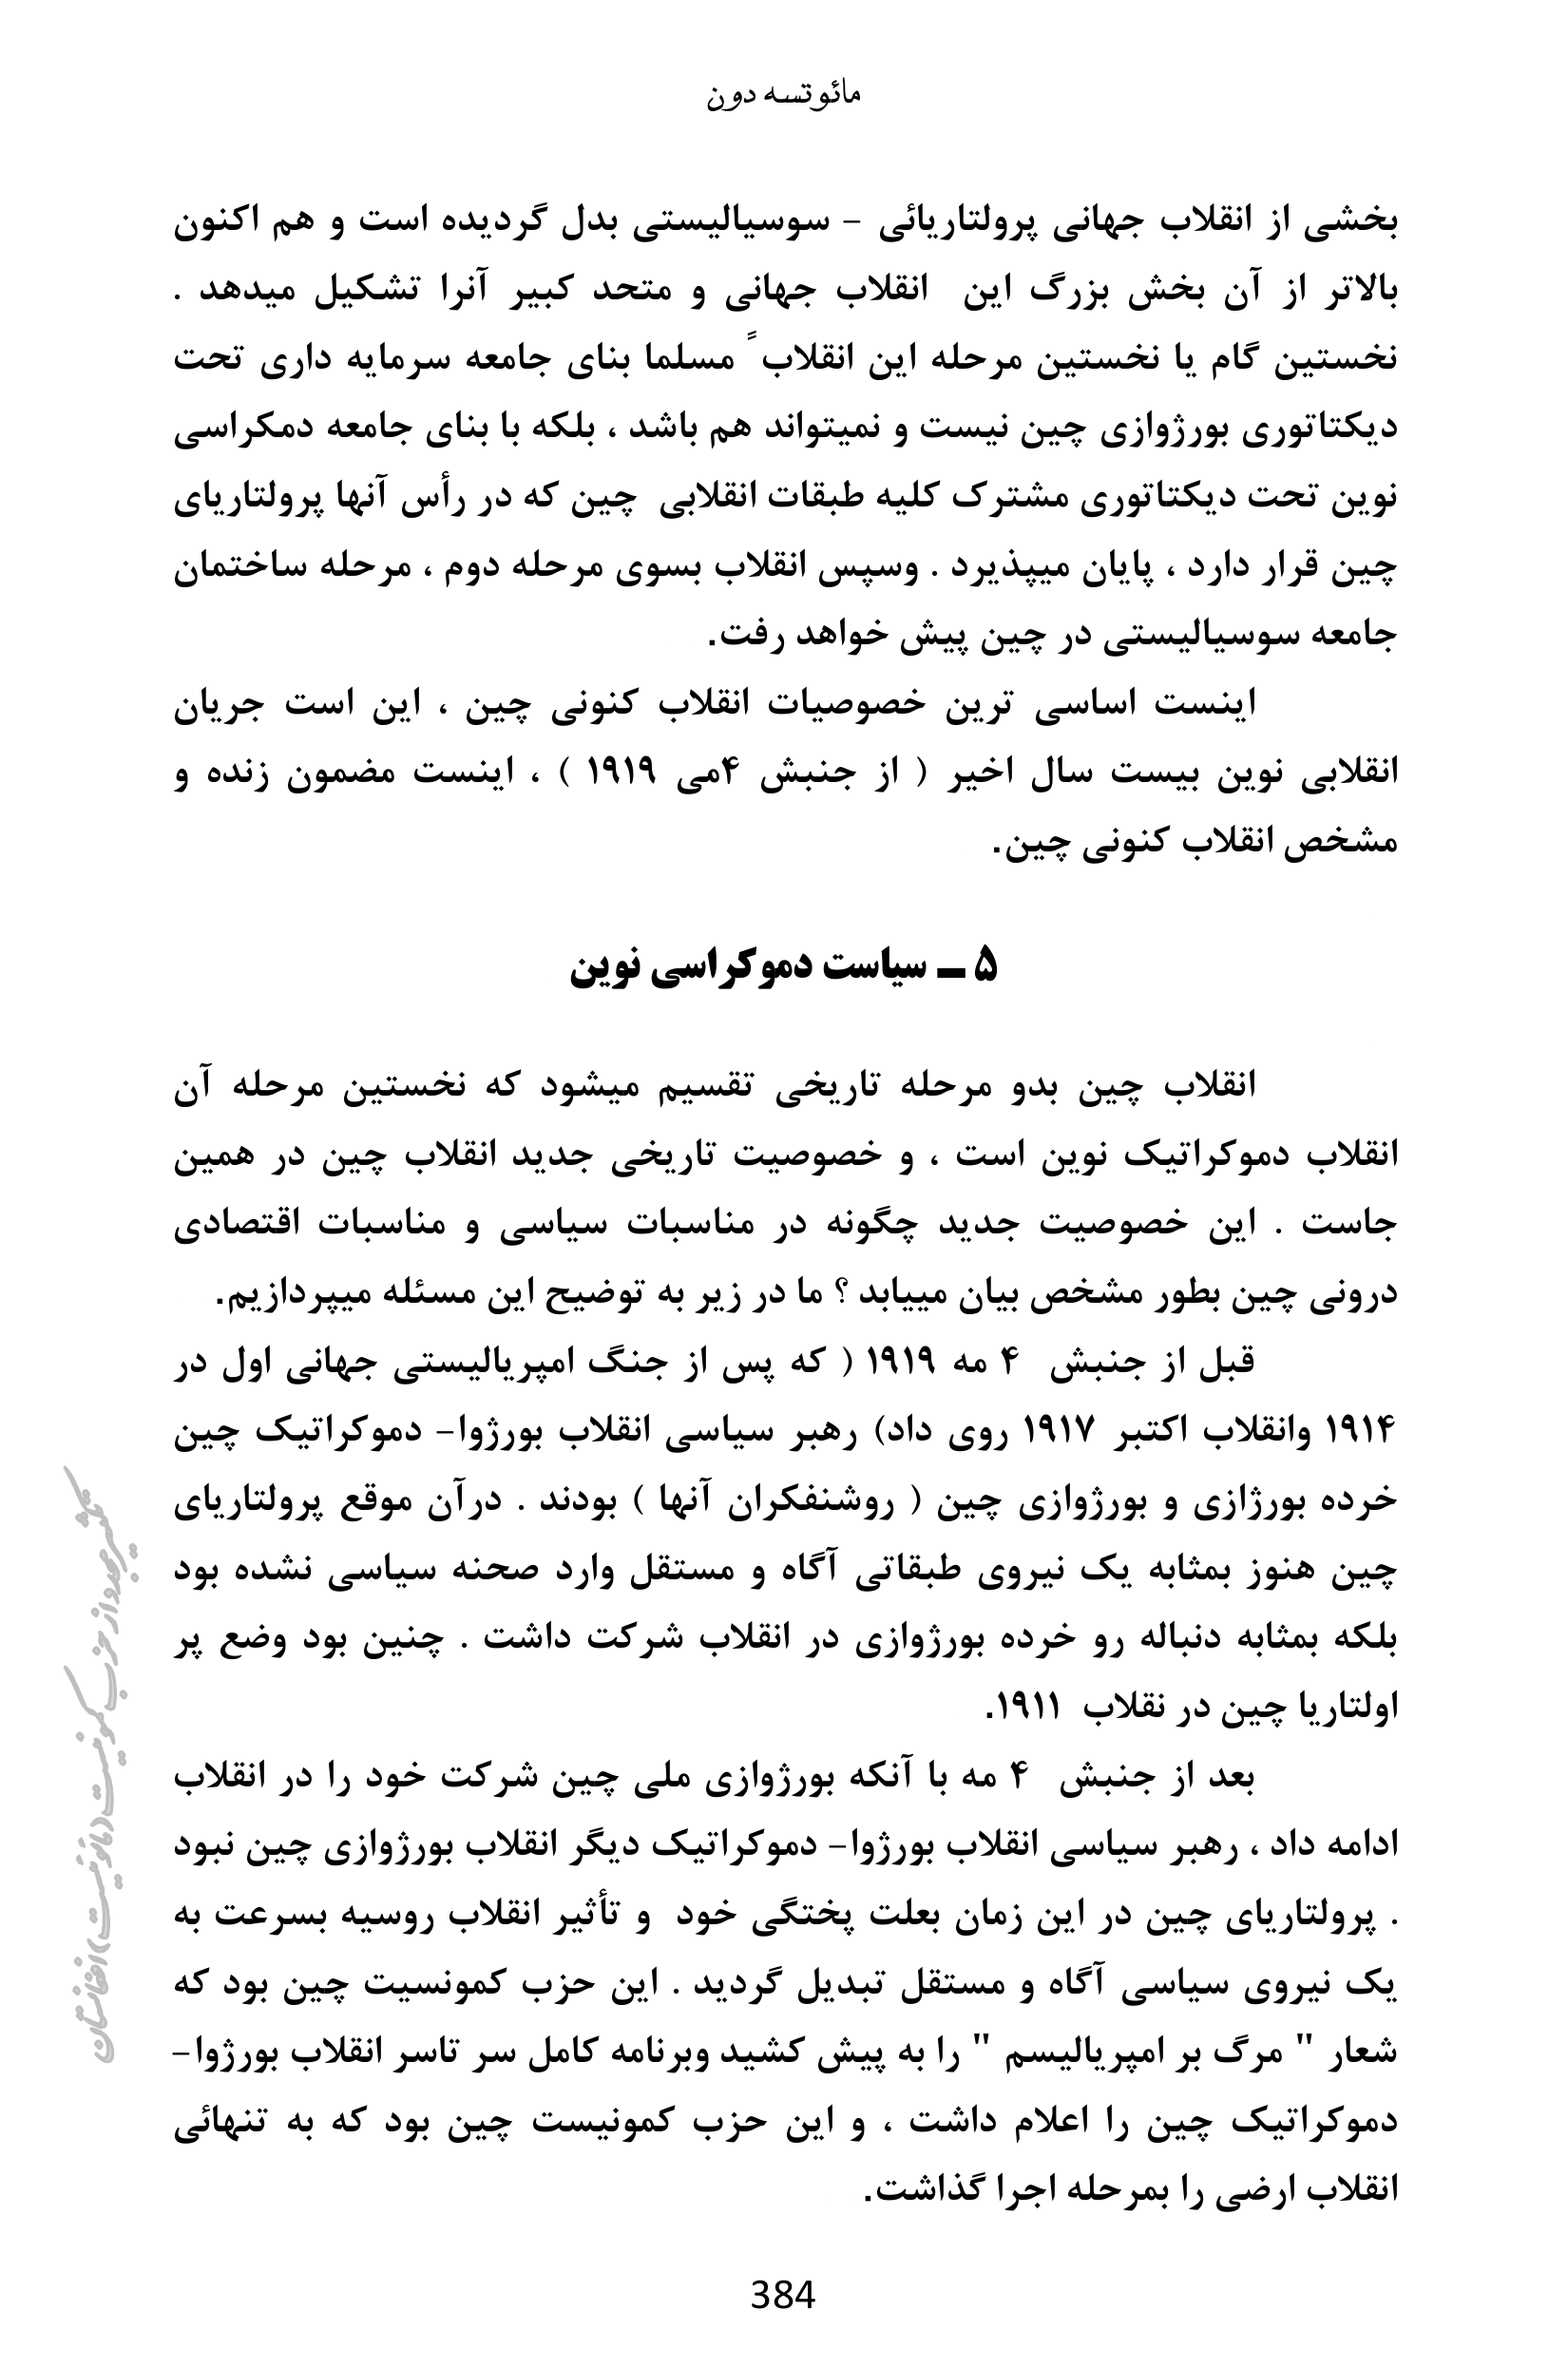 مائو تسه دون
بخشی از انقلاب جهانی پرولتاریائی – سوسیالیستی بدل گردیده است و هم اکنون
بالاتر از آن بخش بزرگ این انقلاب جهانی و متحد کبیر آنرا تشکیل میدهد .
نخستین گام یا نخستین مرحله این انقلاب ً مسلما بنای جامعه سرمایه داری تحت
دیکتاتوری بورژوازی چین نیست و نمیتواند هم باشد ، بلکه با بنای جامعه دمکراسی
نوین تحت دیکتاتوری مشترک کلیه طبقات انقلابی چین که در رأس آنها پرولتاریای
چین قرار دارد ، پایان میپذیرد . وسپس انقلاب بسوی مرحله دوم ، مرحله ساختمان
جامعه سوسیالیستی در چین پیش خواهد رفت.
اینست اساسی ترین خصوصیات انقلاب کنونی چین ، این است جریان
انقلابی نوین بیست سال اخیر ( از جنبش ۴می ۱۹۱۹ ) ، اینست مضمون زنده و
مشخص انقلاب کنونی چین.
۵ ــ سیاست دموکراسی نوین
انقلاب چین بدو مرحله تاریخی تقسیم میشود که نخستین مرحله آن
انقلاب دموکراتیک نوین است ، و خصوصیت تاریخی جدید انقلاب چین در همین
جاست . این خصوصیت جدید چگونه در مناسبات سیاسی و مناسبات اقتصادی
درونی چین بطور مشخص بیان مییابد ؟ ما در زیر به توضیح این مسئله میپردازیم.
قبل از جنبش ۴ مه ۱۹۱۹ ( که پس از جنگ امپریالیستی جهانی اول در
۱۹۱۴ وانقلاب اکتبر ۱۹۱۷ روی داد) رهبر سیاسی انقلاب بورژوا– دموکراتیک چین
خرده بورژازی و بورژوازی چین ( روشنفکران آنها ) بودند . درآن موقع پرولتاریای
چین هنوز بمثابه یک نیروی طبقاتی آگاه و مستقل وارد صحنه سیاسی نشده بود
بلکه بمثابه دنباله رو خرده بورژوازی در انقلاب شرکت داشت . چنین بود وضع پر
اولتاریا چین در نقلاب ۱۹۱۱.
بعد از جنبش ۴ مه با آنکه بورژوازی ملی چین شرکت خود را در انقلاب
ادامه داد ، رهبر سیاسی انقلاب بورژوا– دموکراتیک دیگر انقلاب بورژوازی چین نبود
. پرولتاریای چین در این زمان بعلت پختگی خود و تأثیر انقلاب روسیه بسرعت به
یک نیروی سیاسی آگاه و مستقل تبدیل گردید . این حزب کمونسیت چین بود که
شعار " مرگ بر امپریالیسم " را به پیش کشید وبرنامه کامل سر تاسر انقلاب بورژوا–
دموکراتیک چین را اعلام داشت ، و این حزب کمونیست چین بود که به تنهائی
انقلاب ارضی را بمرحله اجرا گذاشت.
384
تکثیر مجدد از حزب کمونیست (مائوئیست) افغانستان